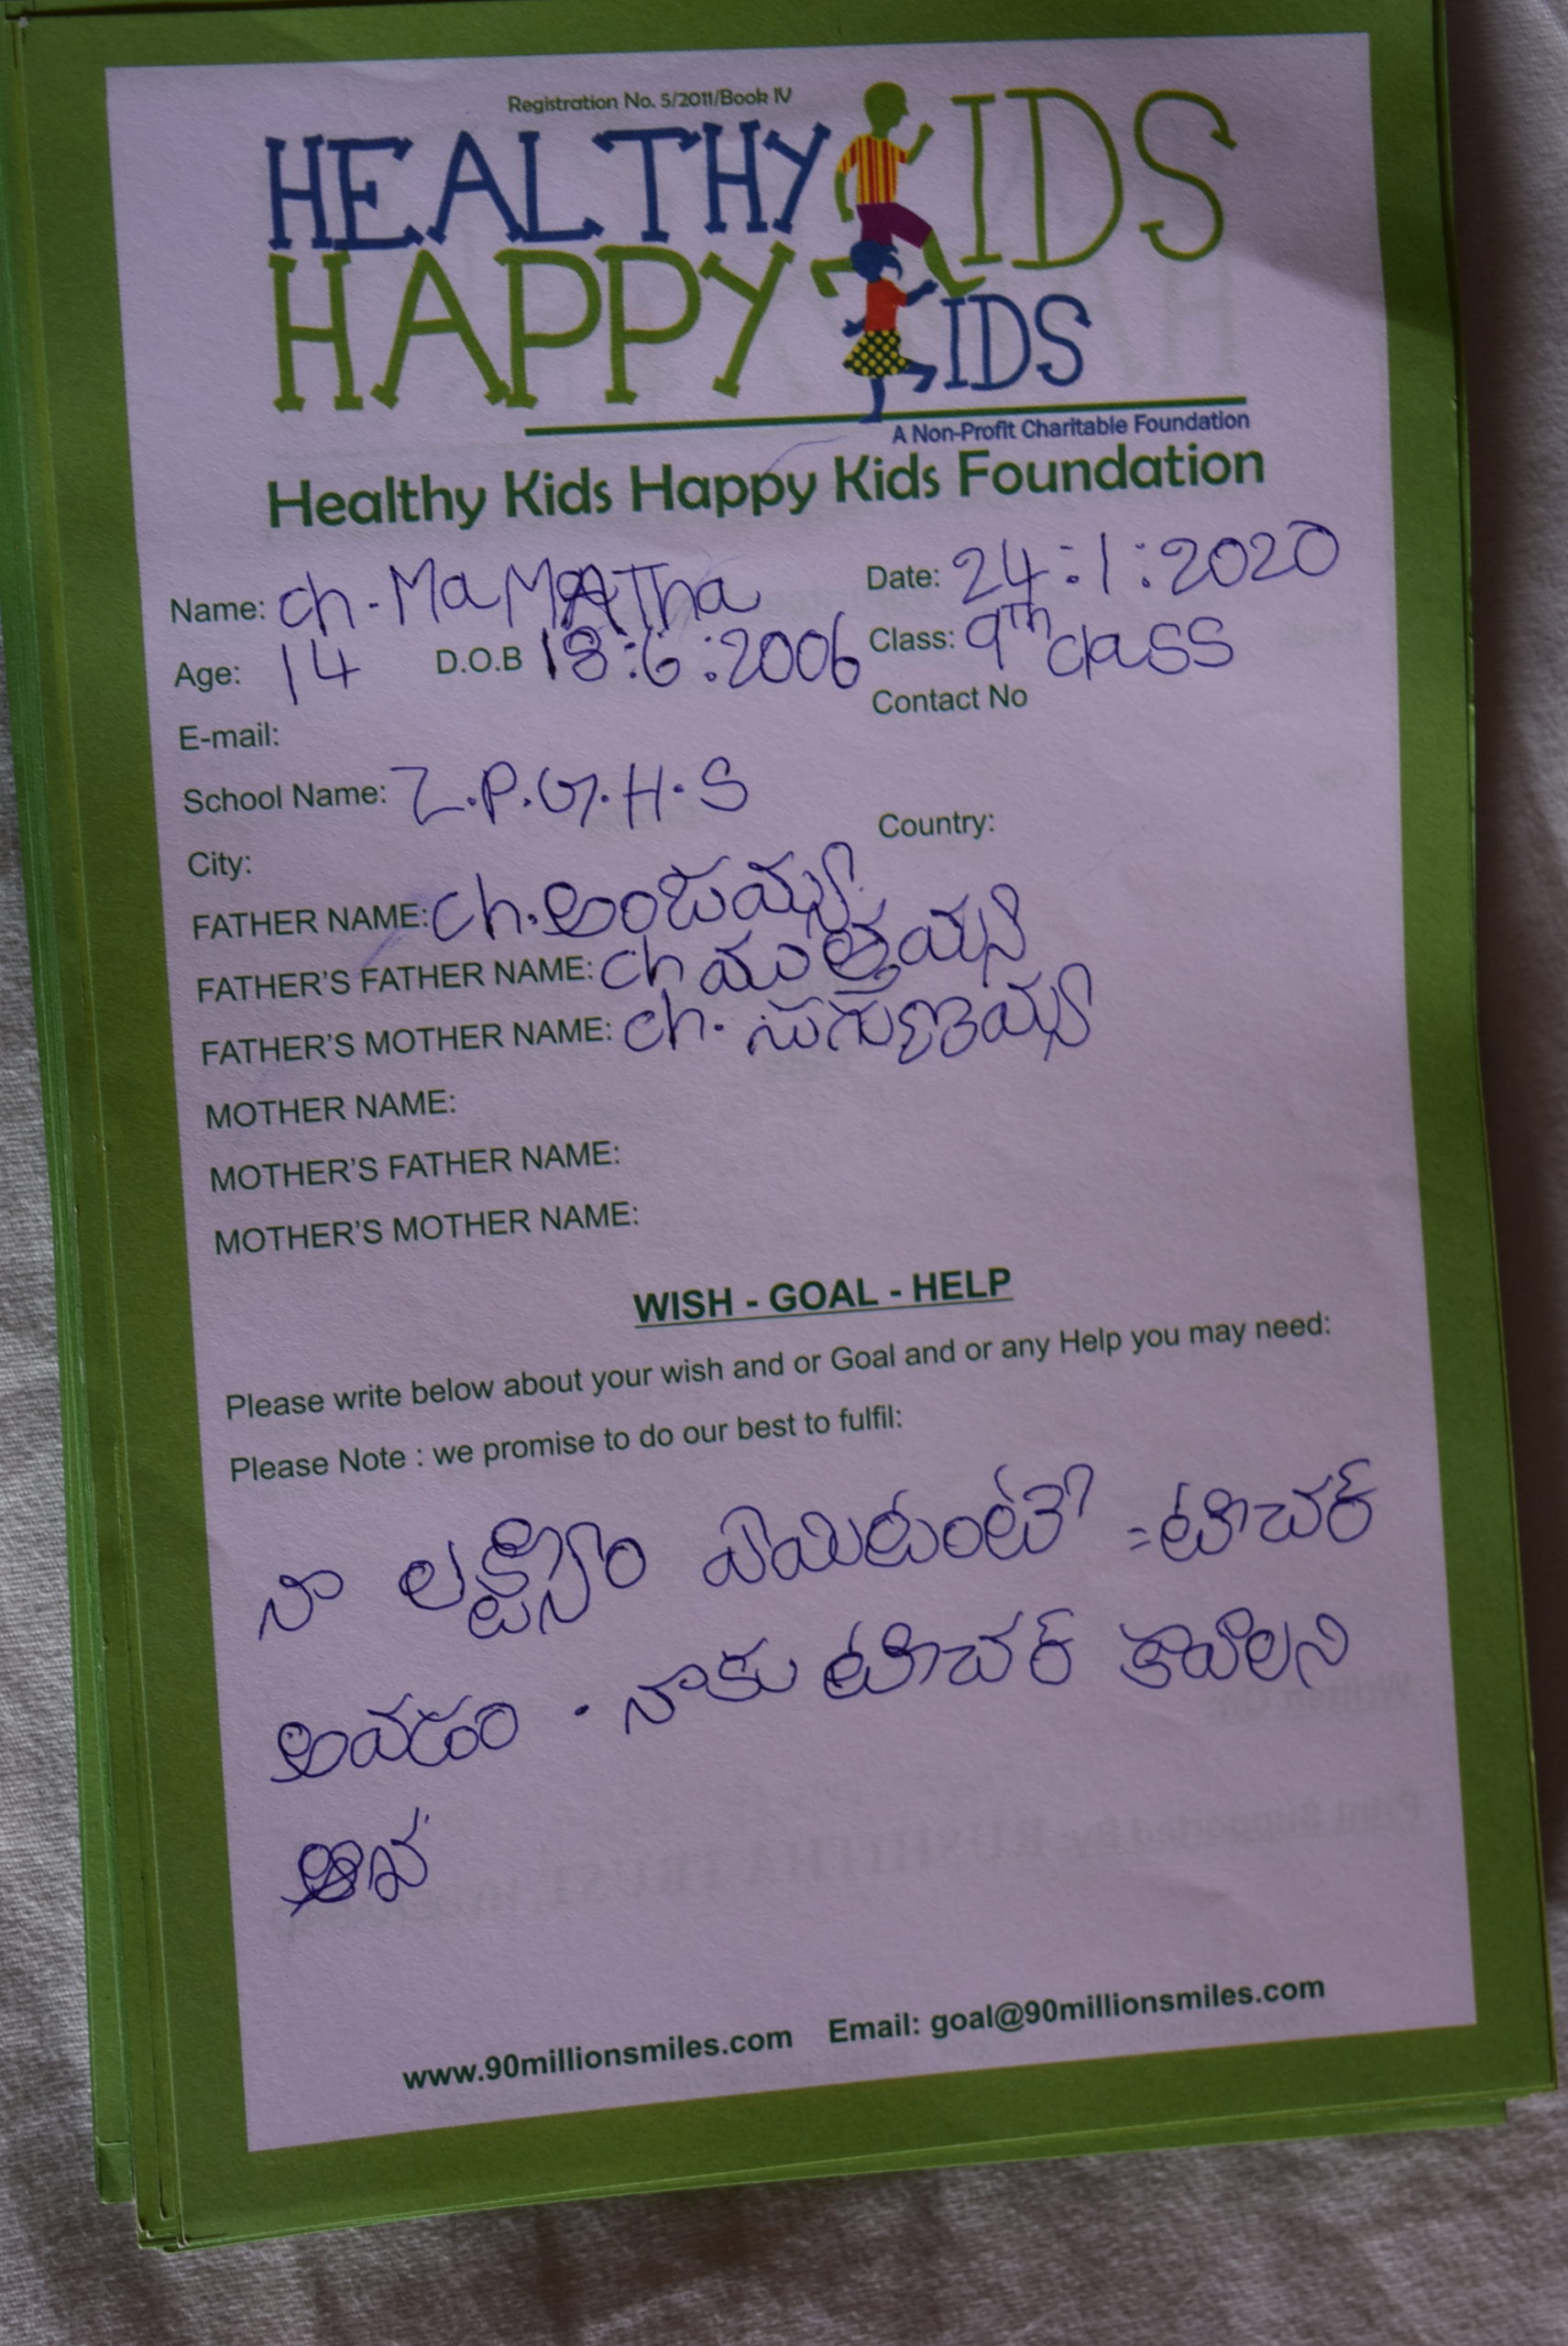 Registration No. 5/2011/Book IV
HEALTHY KIDS
HAPPY KIDS
A Non-Profit Charitable Foundation
Healthy Kids Happy Kids Foundation
Name: Ch. MaMATha Date: 24:1:2020
Age: 14 D.O.B 18:6:2006 Class: 9th class
E-mail: Contact No
School Name: Z.P.G.H.S
City: Country:
FATHER NAME: Ch. అంజయ్య
FATHER'S FATHER NAME: Ch ముత్తయ్య
FATHER'S MOTHER NAME: Ch. సుగుణమ్మ
MOTHER NAME:
MOTHER'S FATHER NAME:
MOTHER'S MOTHER NAME:
WISH - GOAL - HELP
Please write below about your wish and or Goal and or any Help you may need:
Please Note : we promise to do our best to fulfil:
నా లక్ష్యం ఏమిటంటే? = టీచర్
అవడం . నాకు టీచర్ కావాలని
www.90millionsmiles.com Email: goal@90millionsmiles.com